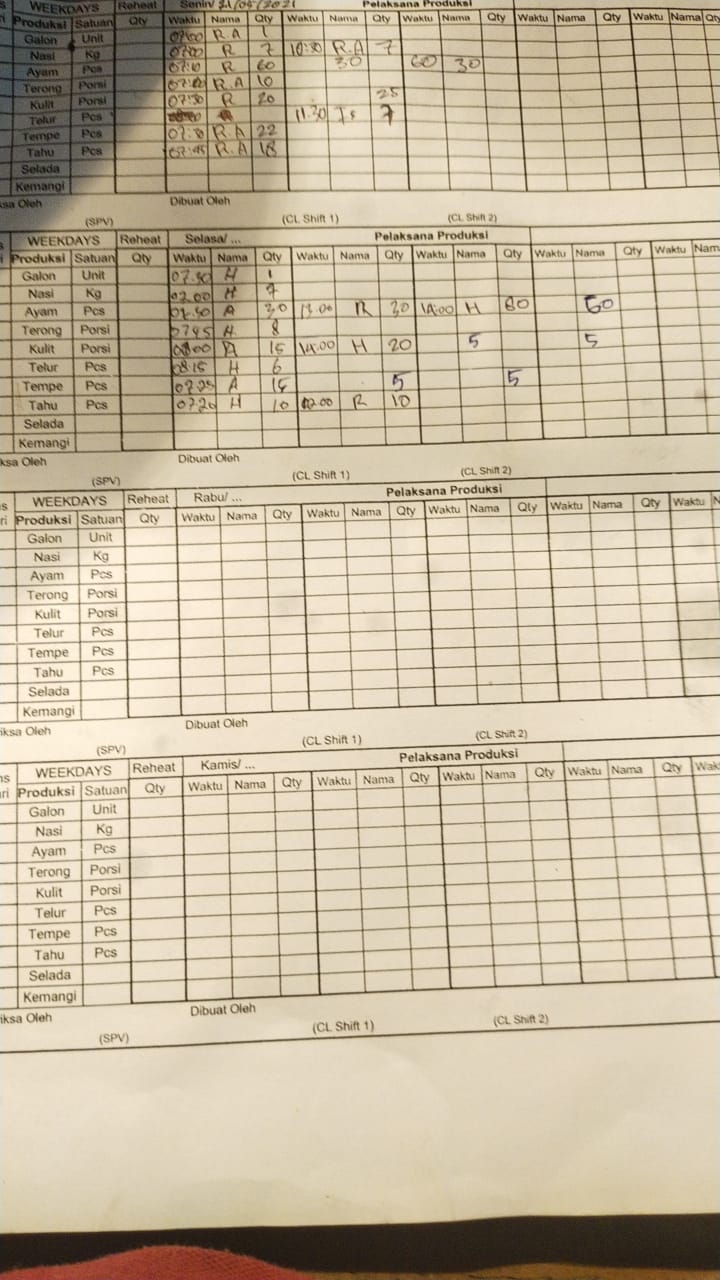 WEEKDAYS Reheat Senin/ 31/05/2021 Pelaksana Produksi
Produksi Satuan Qty Waktu Nama Qty Waktu Nama Qty Waktu Nama Qty Waktu Nama Qty Waktu Nama Qty
Galon Unit 07:00 R.A 1
Nasi Kg 07:00 R 7 10:30 R.A 7
Ayam Pcs 07:10 R 60 30 60 30
Terong Porsi R.A 10
Kulit Porsi 07:30 R 20 25
Telur Pcs 11.30 7
Tempe Pcs R.A 22
Tahu Pcs 07:45 R.A 18
Selada
Kemangi
ksa Oleh Dibuat Oleh
(SPV) (CL Shift 1) (CL Shift 2)
WEEKDAYS Reheat Selasa/ ... Pelaksana Produksi
Produksi Satuan Qty Waktu Nama Qty Waktu Nama Qty Waktu Nama Qty Waktu Nama Qty Waktu Nam
Galon Unit 07.30 H 1
Nasi Kg 07.00 H 7
Ayam Pcs A 30 13.00 R 30 14:00 H 60 50
Terong Porsi 0745 H 8
Kulit Porsi 0800 A 15 14.00 H 20 5 5
Telur Pcs 08.15 H 6
Tempe Pcs 07.25 A 15 5 5
Tahu Pcs 07.20 H 10 R 10
Selada
Kemangi
ksa Oleh Dibuat Oleh
(SPV) (CL Shift 1) (CL Shift 2)
s WEEKDAYS Reheat Rabu/ ... Pelaksana Produksi
ri Produksi Satuan Qty Waktu Nama Qty Waktu Nama Qty Waktu Nama Qty Waktu Nama Qty Waktu N
Galon Unit
Nasi Kg
Ayam Pcs
Terong Porsi
Kulit Porsi
Telur Pcs
Tempe Pcs
Tahu Pcs
Selada
Kemangi
iksa Oleh Dibuat Oleh
(SPV) (CL Shift 1) (CL Shift 2)
ns WEEKDAYS Reheat Kamis/ ... Pelaksana Produksi
ari Produksi Satuan Qty Waktu Nama Qty Waktu Nama Qty Waktu Nama Qty Waktu Nama Qty Wak
Galon Unit
Nasi Kg
Ayam Pcs
Terong Porsi
Kulit Porsi
Telur Pcs
Tempe Pcs
Tahu Pcs
Selada
Kemangi
iksa Oleh Dibuat Oleh
(SPV) (CL Shift 1) (CL Shift 2)